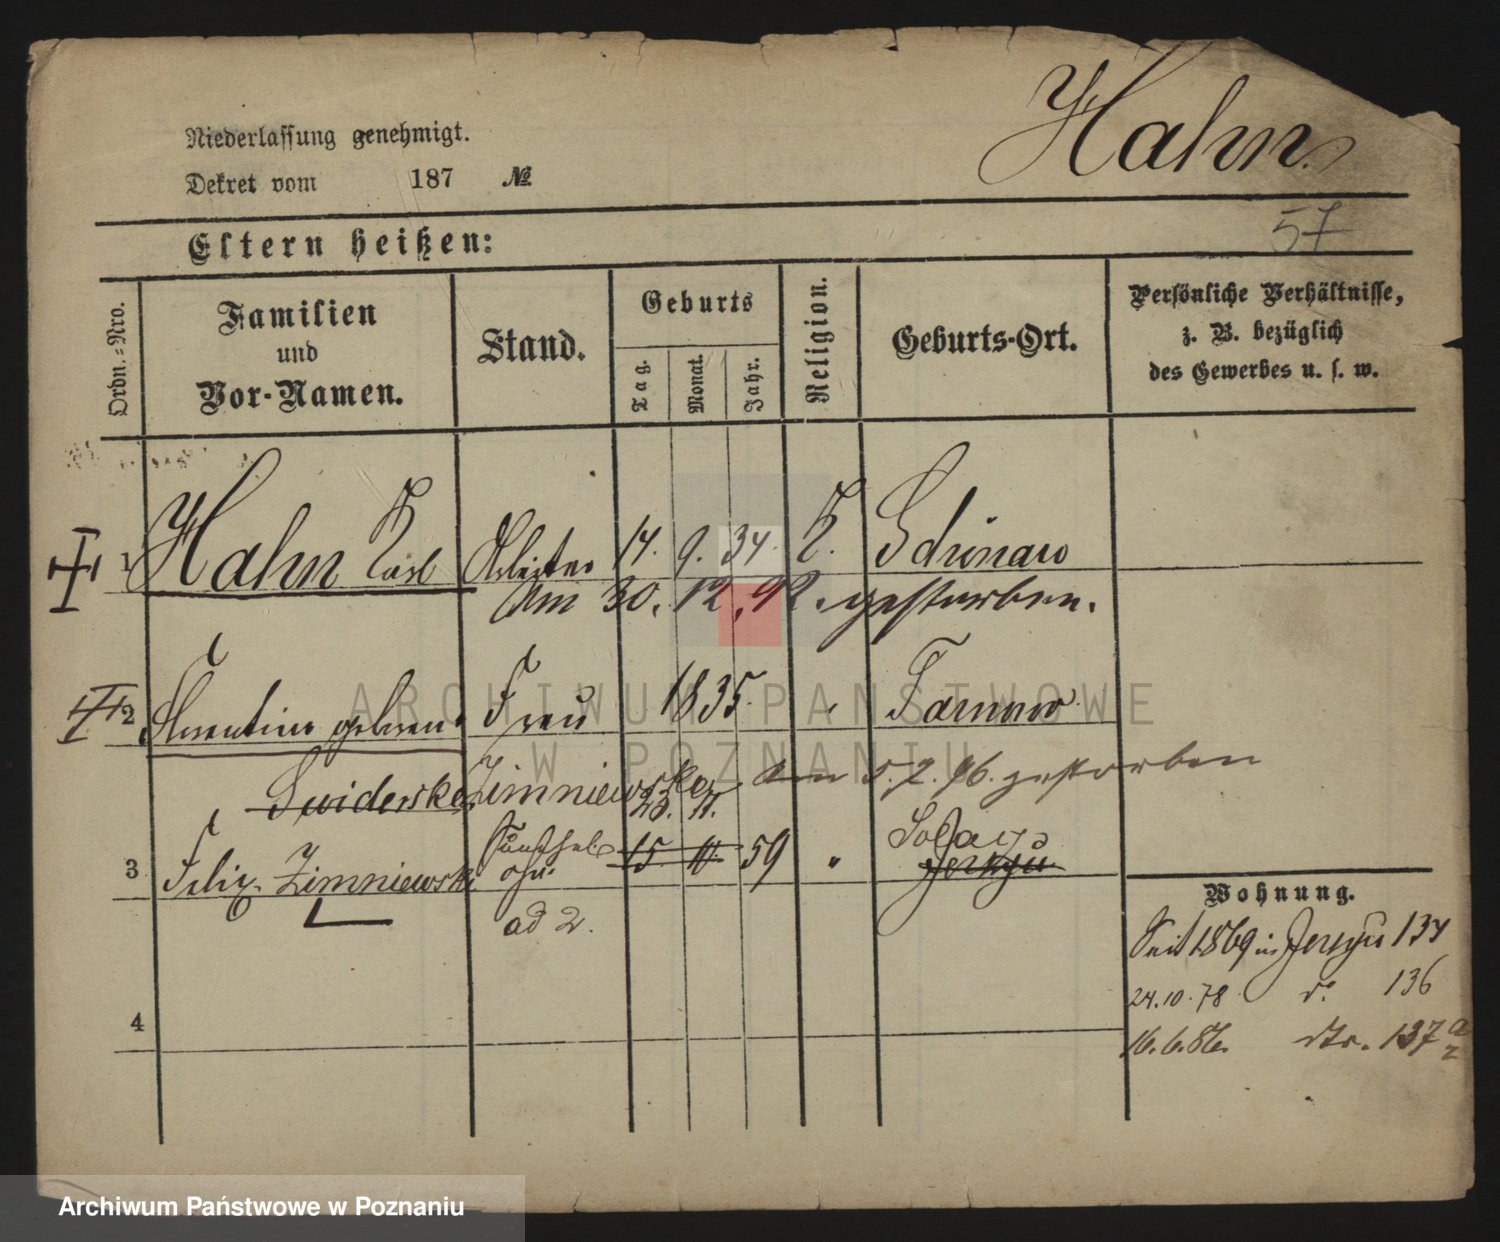 Hahn.
Niederlassung genehmigt.
Dekret vom 187 №
57
Eltern heißen:
Ordn.-Nro.
Familien und Vor-Namen.
Stand.
Geburts
Tag.
Monat.
Jahr.
Religion.
Geburts-Ort.
Persönliche Verhältnisse,
z. B. bezüglich
des Gewerbes u. s. w.
1 Hahn Karl Arbeiter 14. 9. 34. K.
Am 30. 12. 92. gestorben.
2 Florentine geboren Frau 1835 Tarnowo
Swiderska Zimniewska am 5. 2. 96. gestorben
23. 11.
3 Felix Zimniewski 15 11 59 "
Jerzyce
ad 2.
4
Wohnung.
Seit 1869 in Jerzyce 134
24.10.78 do 136
16.6.86. dto. 137 a
ARCHIWUM PAŃSTWOWE
W POZNANIU
Archiwum Państwowe w Poznaniu